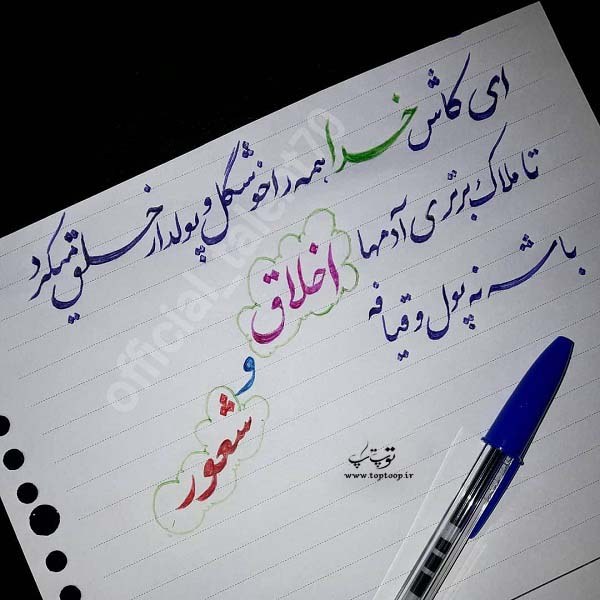 ای کاش خدا همه را خوشگل و پولدار خلق میکرد
تا ملاک برتری آدمها اخلاق
و
شعور
باشه نه پول و قیافه
توپتاپ
www.toptoop.ir
official_talent79